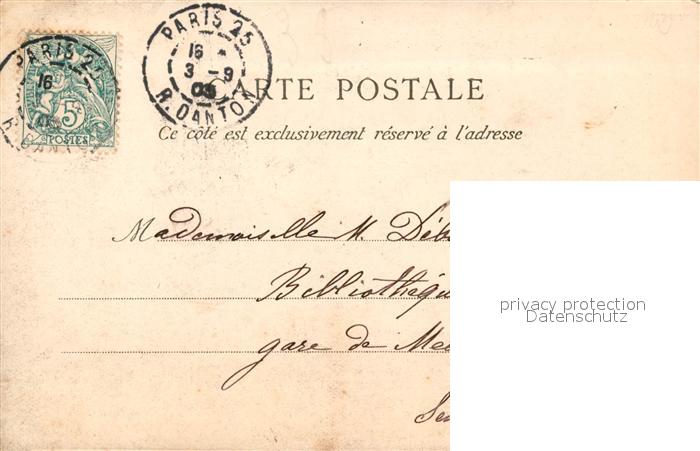 PARIS 25
16
3 - 9
03
R. DANTON
PARIS 25
16
5c
POSTES
CARTE POSTALE
Ce côté est exclusivement réservé à l'adresse
Mademoiselle M. Déb
Bibliothéqu
gare de Me
privacy protection
Datenschutz